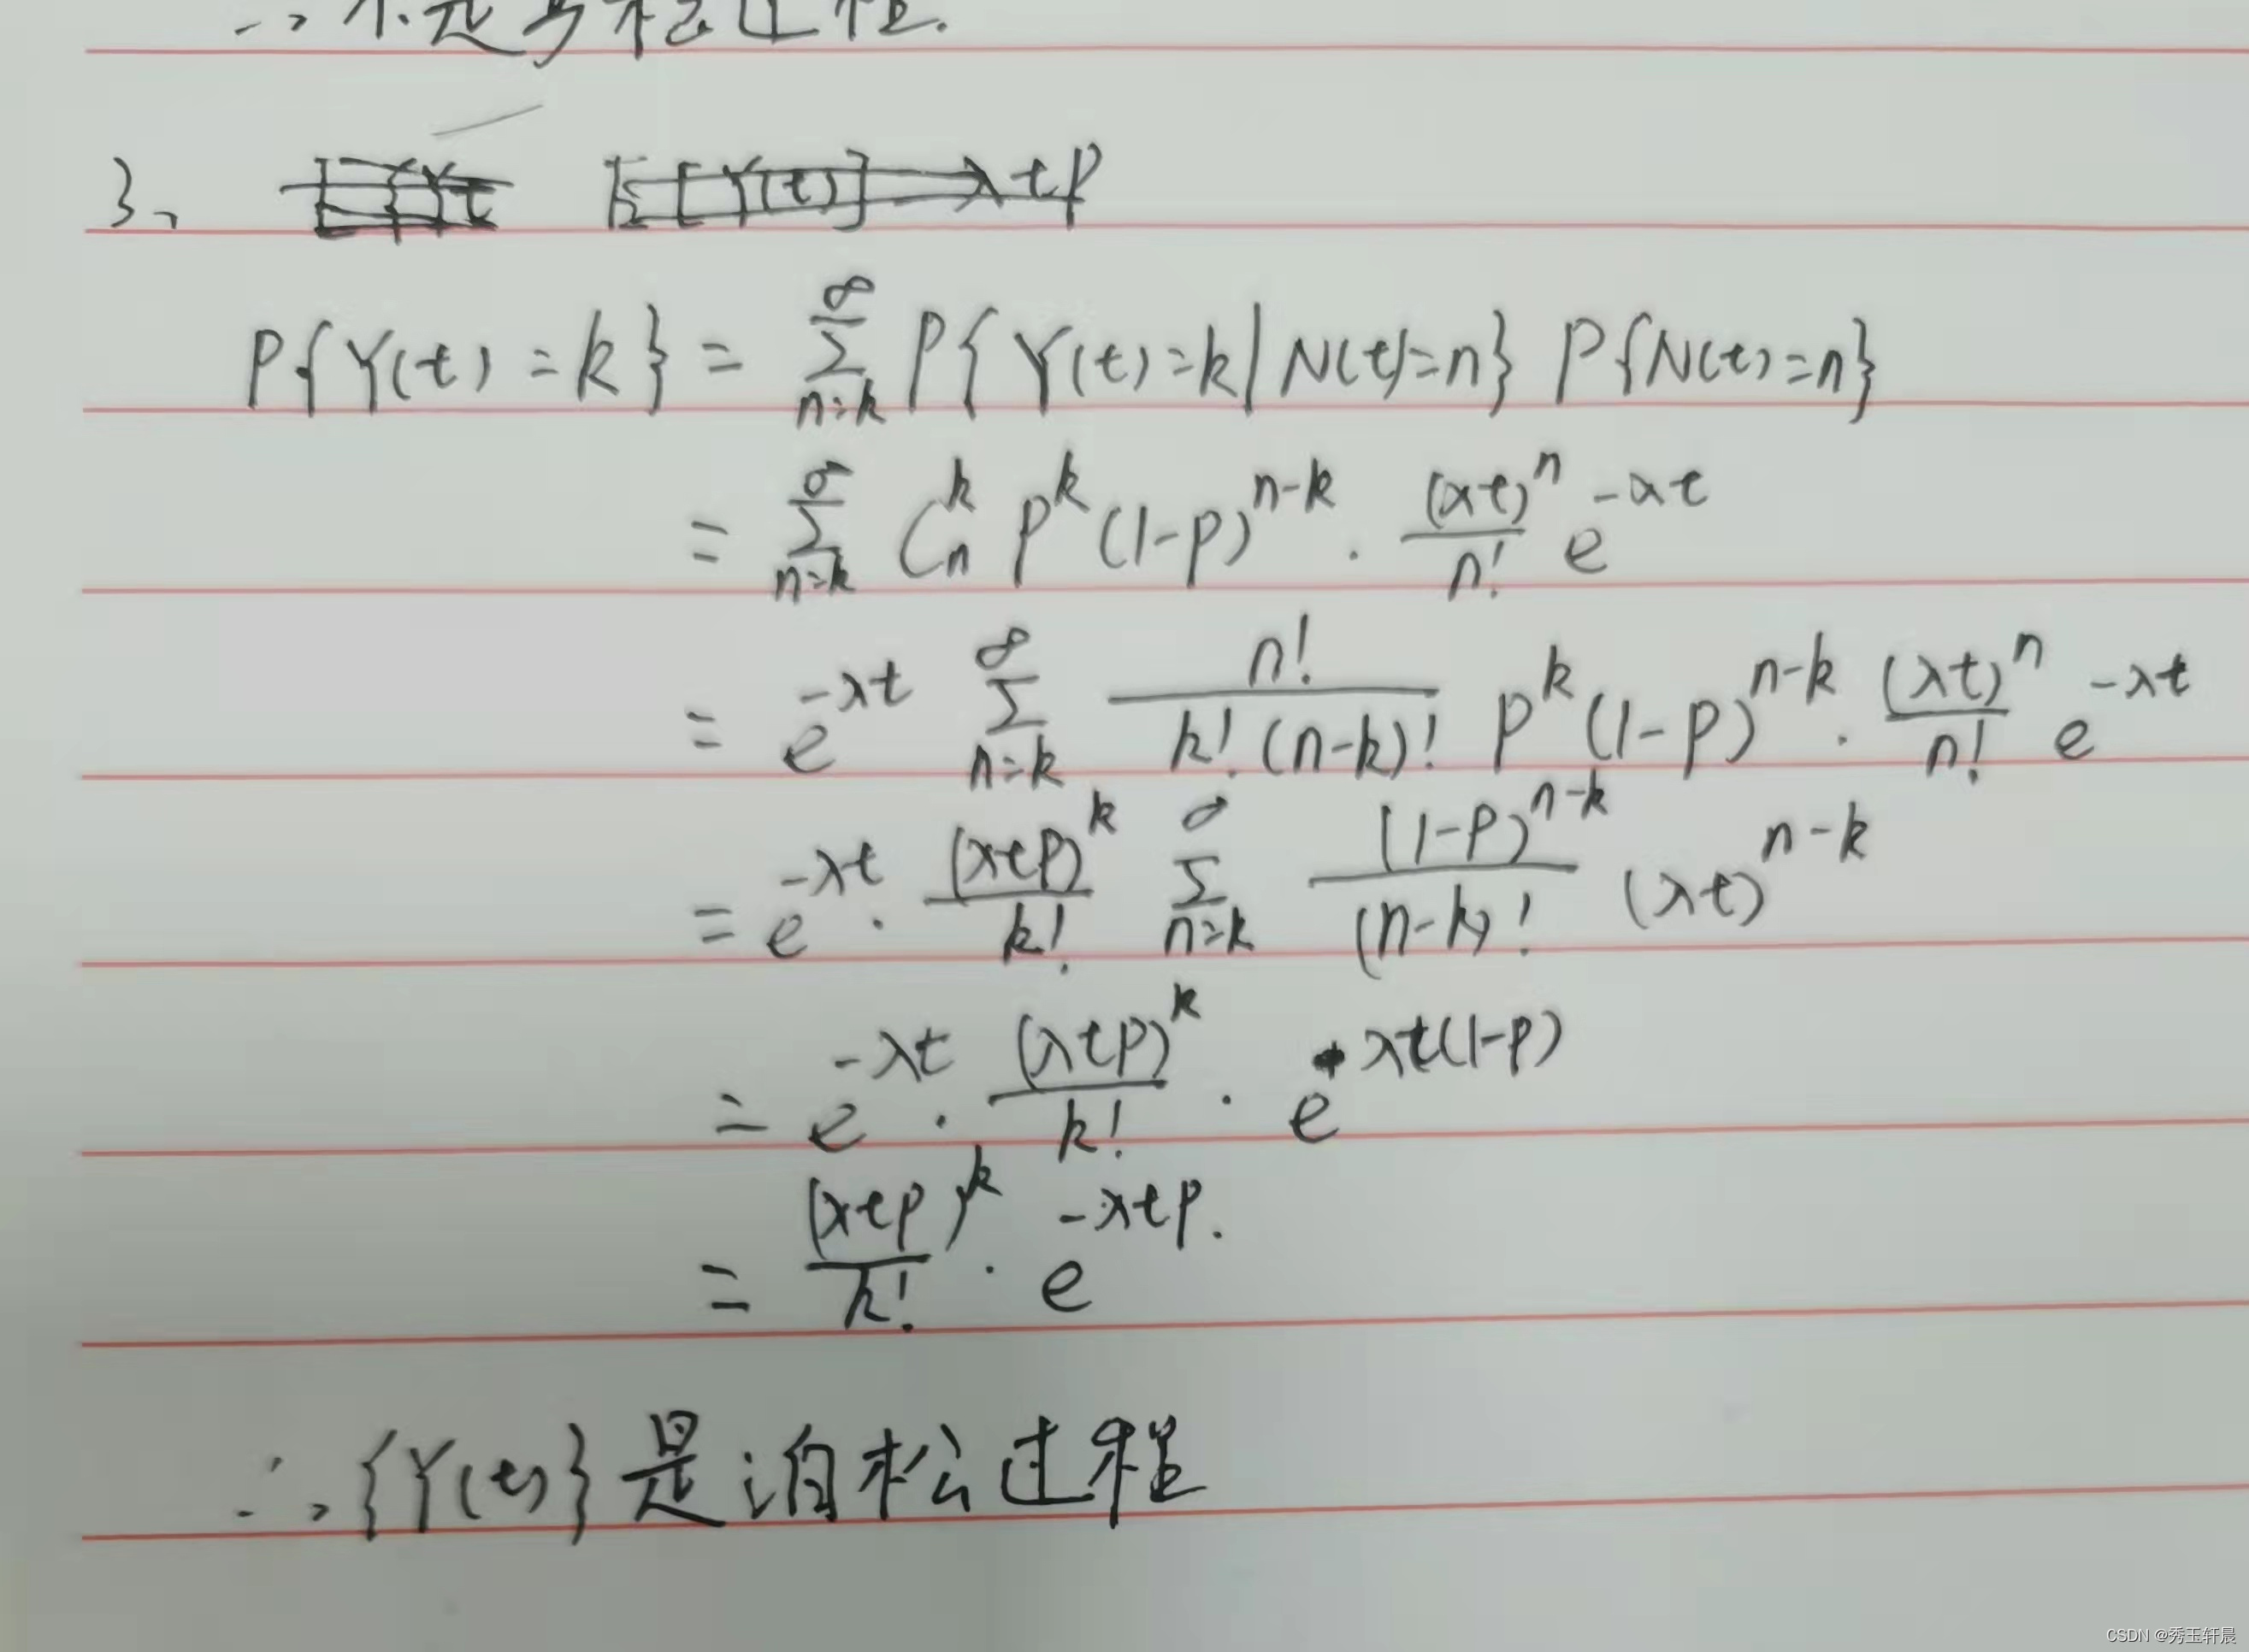 ∴ 不是泊松过程.
3、 E[Y(t)] = λtp
P{Y(t)=k} = \sum_{n=k}^{∞} P{Y(t)=k|N(t)=n} P{N(t)=n}
= \sum_{n=k}^{∞} C_n^k p^k (1-p)^{n-k} · \frac{(λt)^n}{n!} e^{-λt}
= e^{-λt} \sum_{n=k}^{∞} \frac{n!}{k!(n-k)!} p^k (1-p)^{n-k} · \frac{(λt)^n}{n!} e^{-λt}
= e^{-λt} · \frac{(λtp)^k}{k!} \sum_{n=k}^{∞} \frac{(1-p)^{n-k}}{(n-k)!} (λt)^{n-k}
= e^{-λt} · \frac{(λtp)^k}{k!} · e^{λt(1-p)}
= \frac{(λtp)^k}{k!} · e^{-λtp}.
∴ {Y(t)} 是泊松过程
CSDN @秀玉轩晨